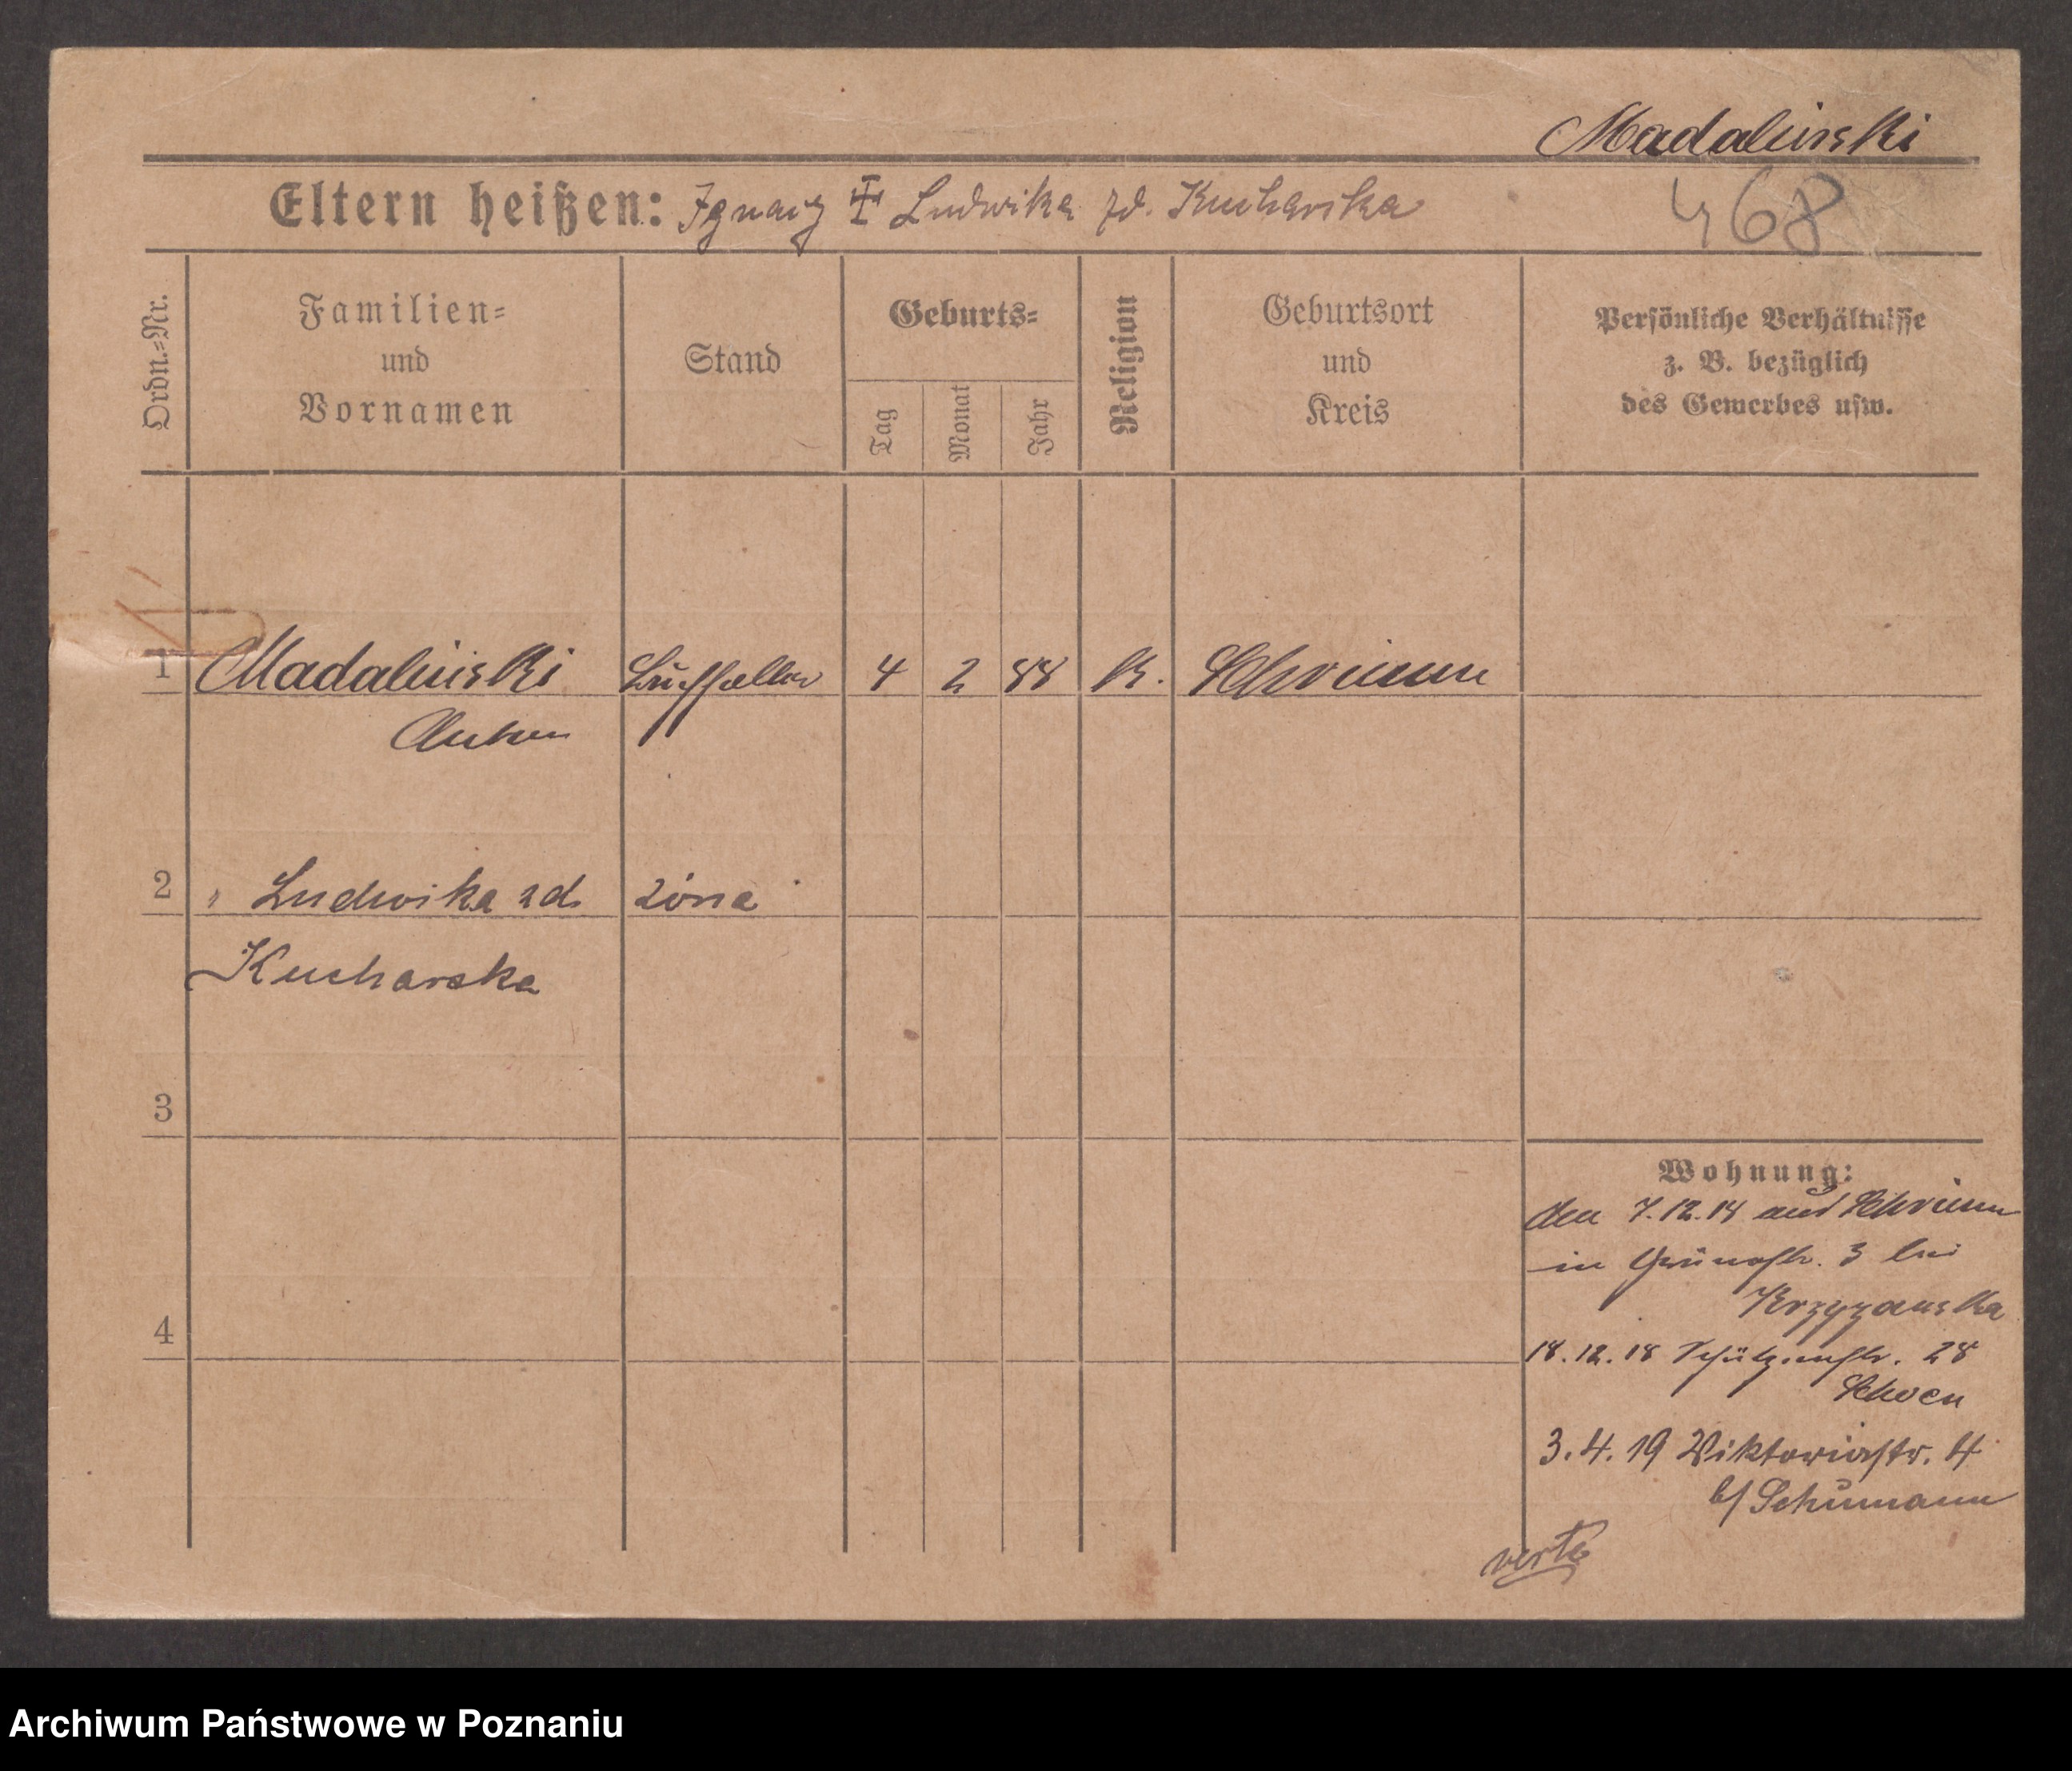 Madalinski
Eltern heißen: Ignacy Ludwika zd. Kucharska
468
Ordn.=Nr.
Familien=
und
Vornamen
Stand
Geburts=
Tag
Monat
Jahr
Religion
Geburtsort
und
Kreis
Persönliche Verhältnisse
z. B. bezüglich
des Gewerbes usw.
1 Madalinski 4 2 88 K. Schrimm
Anton
2 " Ludwika zd. żona
Kucharska
3
4
Wohnung:
den 7.12.14 aus Schrimm
in Grünestr. 3 bei
Krzyzanska
18.12.18 Schützenstr. 28
3.4.19 Viktoriastr. 4
b/ Schumann
verte
Archiwum Państwowe w Poznaniu